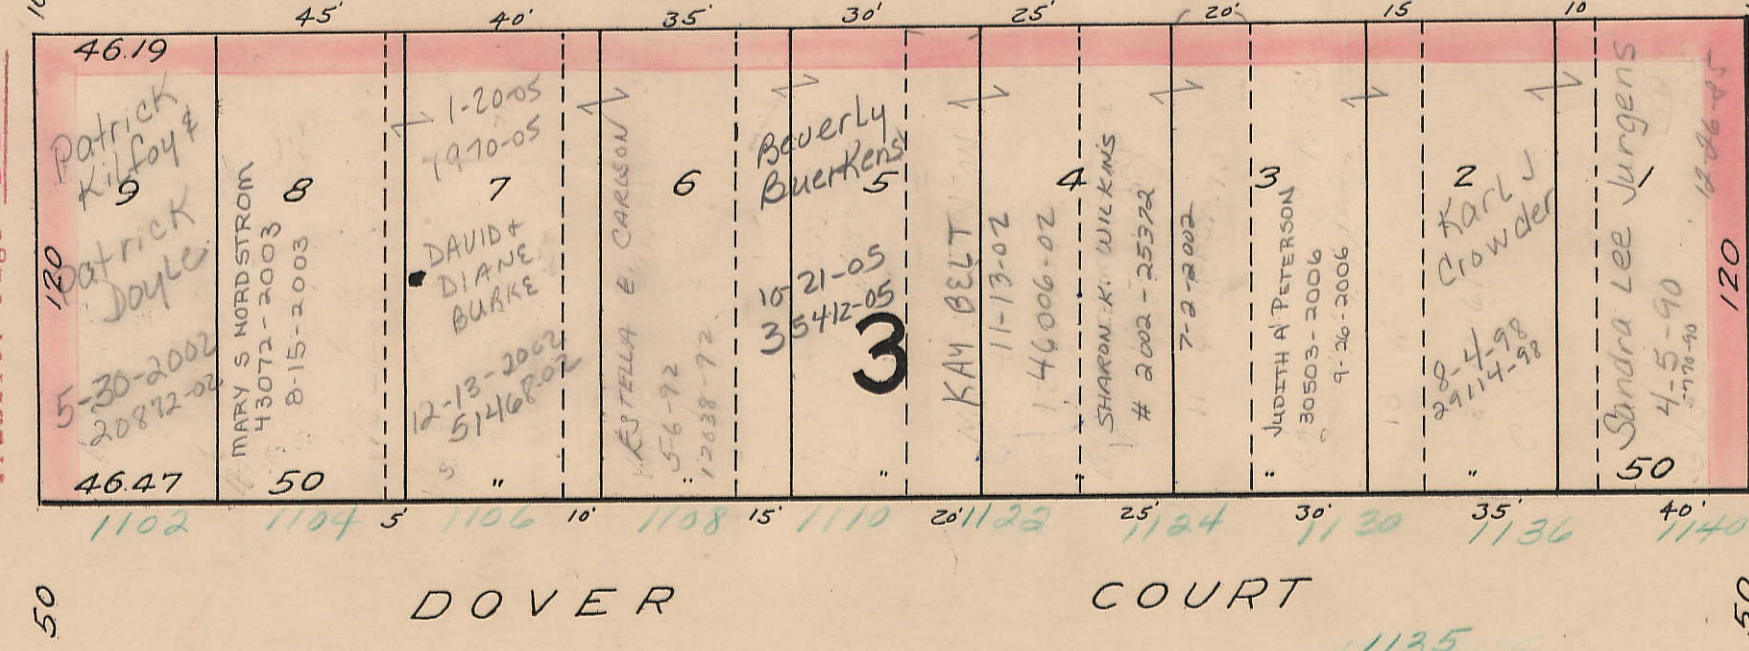 45' 40' 35' 30' 25' 20' 15 10
46.19
Patrick
Kilfoy &
9
Patrick
Doyle
5-30-2002
20872-02
46.47
120
MARY S NORDSTROM
43072-2003
8-15-2003
8
50
1-20-05
1970-05
7
DAVID +
DIANE
BURKE
12-13-2002
51468-02
"
ESTELLA E. CARLSON
5-6-92
12038-92
6
"
Beverly
Buerkens
5
10-21-05
35412-05
3
"
KAY BELT
11-13-02
46006-02
4
"
SHARON K. WILKINS
# 2002-25372
7-2-2002
3
JUDITH A PETERSON
30503-2006
9-26-2006
"
2
Karl J
Crowder
8-4-98
29114-98
"
1
Sandra Lee Jurgens
4-5-90
50
120
1102 1104 5' 1106 10' 1108 15' 1110 20' 1122 25' 1124 30' 1130 35' 1136 40' 1140
50 DOVER COURT 50
1135